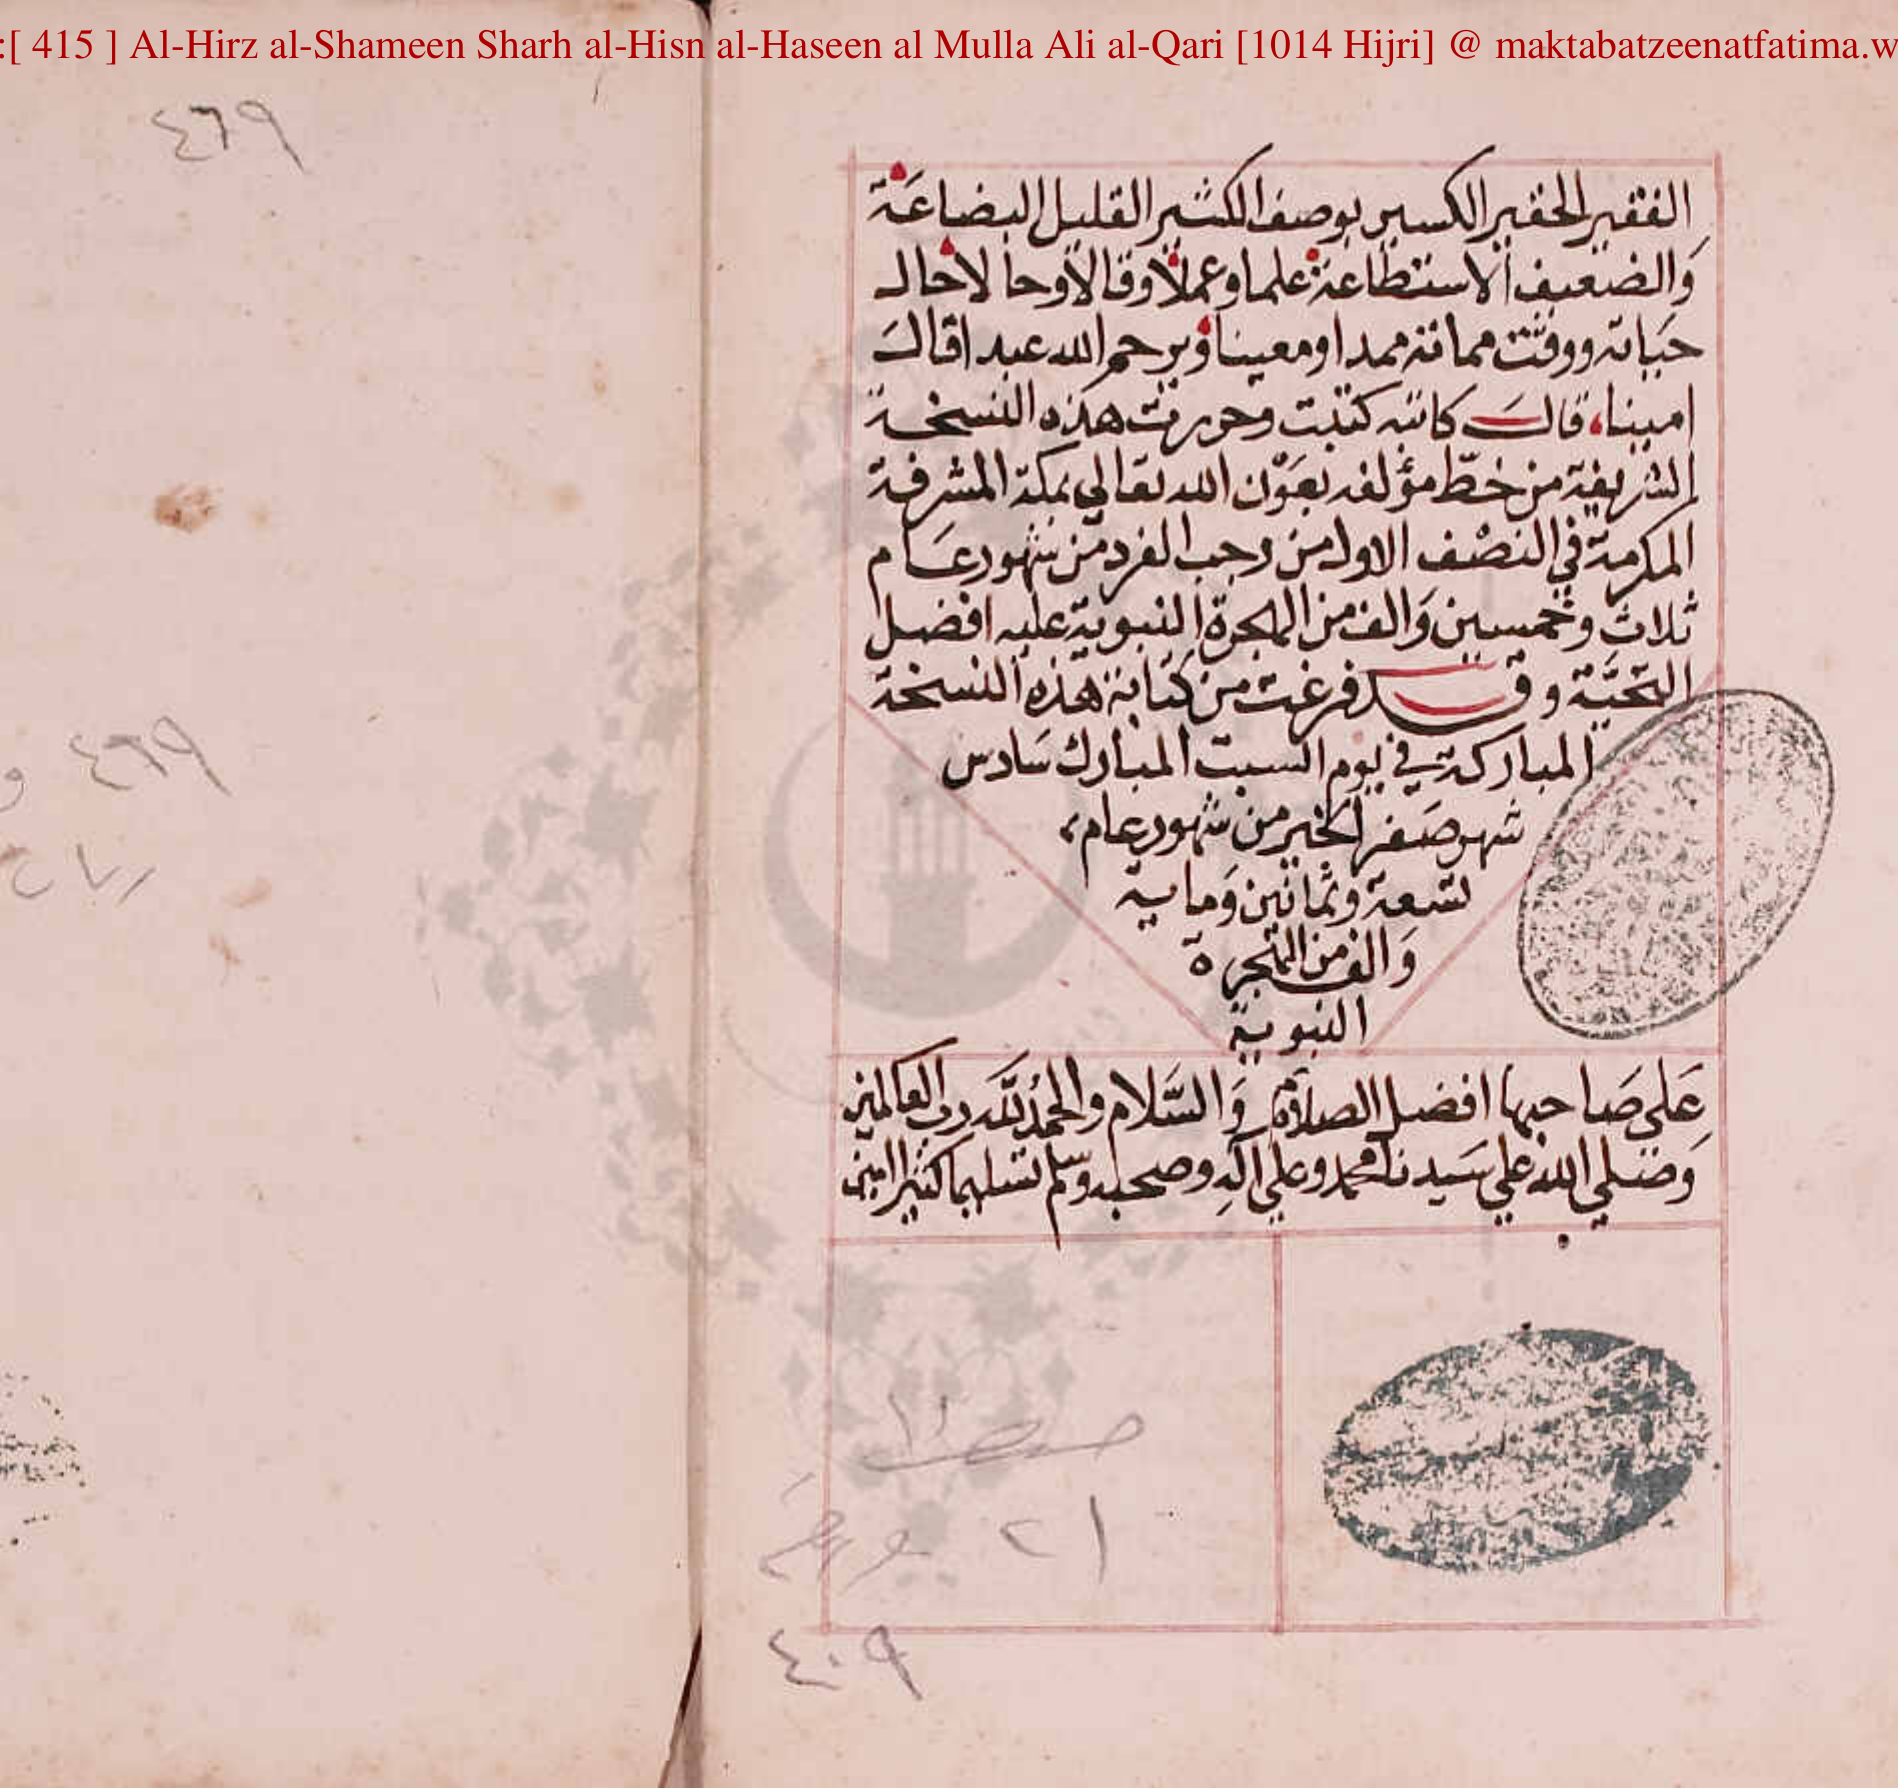 :[ 415 ] Al-Hirz al-Shameen Sharh al-Hisn al-Haseen al Mulla Ali al-Qari [1014 Hijri] @ maktabatzeenatfatima.w
٤٦٩
الفقير الحقير الكسير بوصف الكثير القليل البضاعَة
وَالضعيف الاستطاعة علما وعملا وقالا وحالا حال
حَياته ووقت مماته ممدا ومعينا ويرحم الله عبدا قالَ
امينا، قالَ كاتبه كتبت وحررت هذه النسخة
الشريفة من خطّ مؤلفه بعَوْن الله تعالي بمكة المشرفة
المكرمة في النصْف الاول من رجب الفرد من شهور عَام
ثلاث وخمسين وَالف من الهجرة النبوية عليه افضل
التحيَّة وقد فرغت من كتابة هذه النسخة
المباركة في يوم السبت المبارك سَادس
شهر صَفر الخير من شهور عام
تسعة وثمانين وَماية
وَالف من الهجرة
النبوية
عَلى صَاحبها افضل الصلاة وَالسَّلام والحمدُ للَّه رب العَالمين
وَصَلي الله علي سَيدنا محمد وعلي اله وصحبه وسلم تسليما كثيرا امين
٤٦٩
٢١
٤٠٩